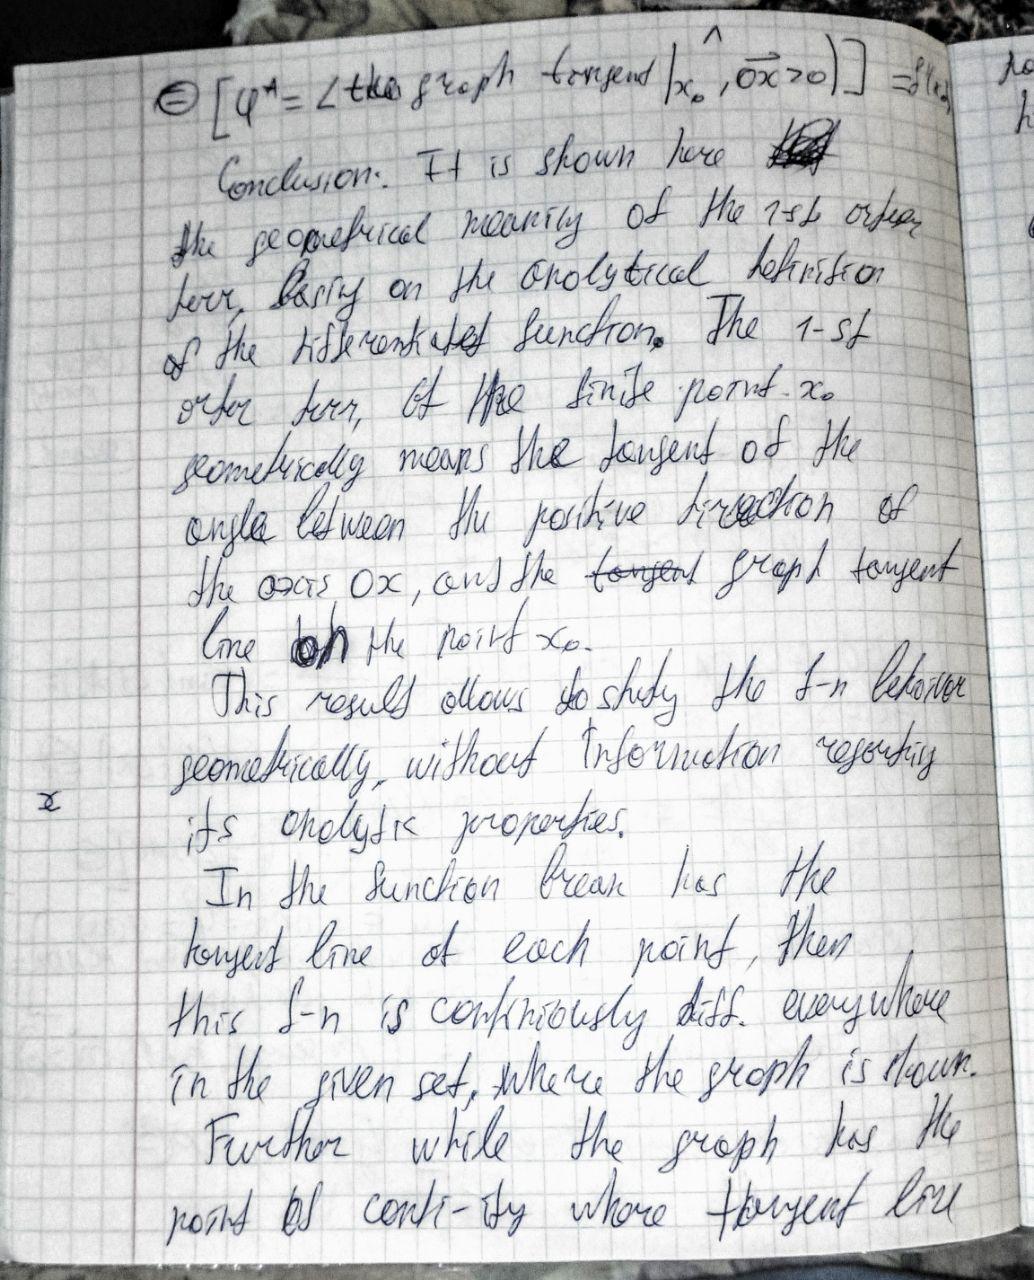 ⊜ [φ* = ∠(the graph tangend|x₀ ^, 0x⃗>0)] =
Conclusion: It is shown here
the geometrical meaning of the 1-st order
derr, basing on the analytical definition
of the differentiated function. The 1-st
order derr, at the finite point x₀
geometrically means the tangent of the
angle between the positive direction of
the axis 0x, and the graph tangent
line on the point x₀.
This result allows to study the f-n behaivor
geometrically, without information regarding
x
its analytic properties.
In the function break has the
tangent line at each point, then
this f-n is continiously diff. everywhere
in the given set, where the graph is shown.
Further while the graph has the
point of conti-ity where tangent line